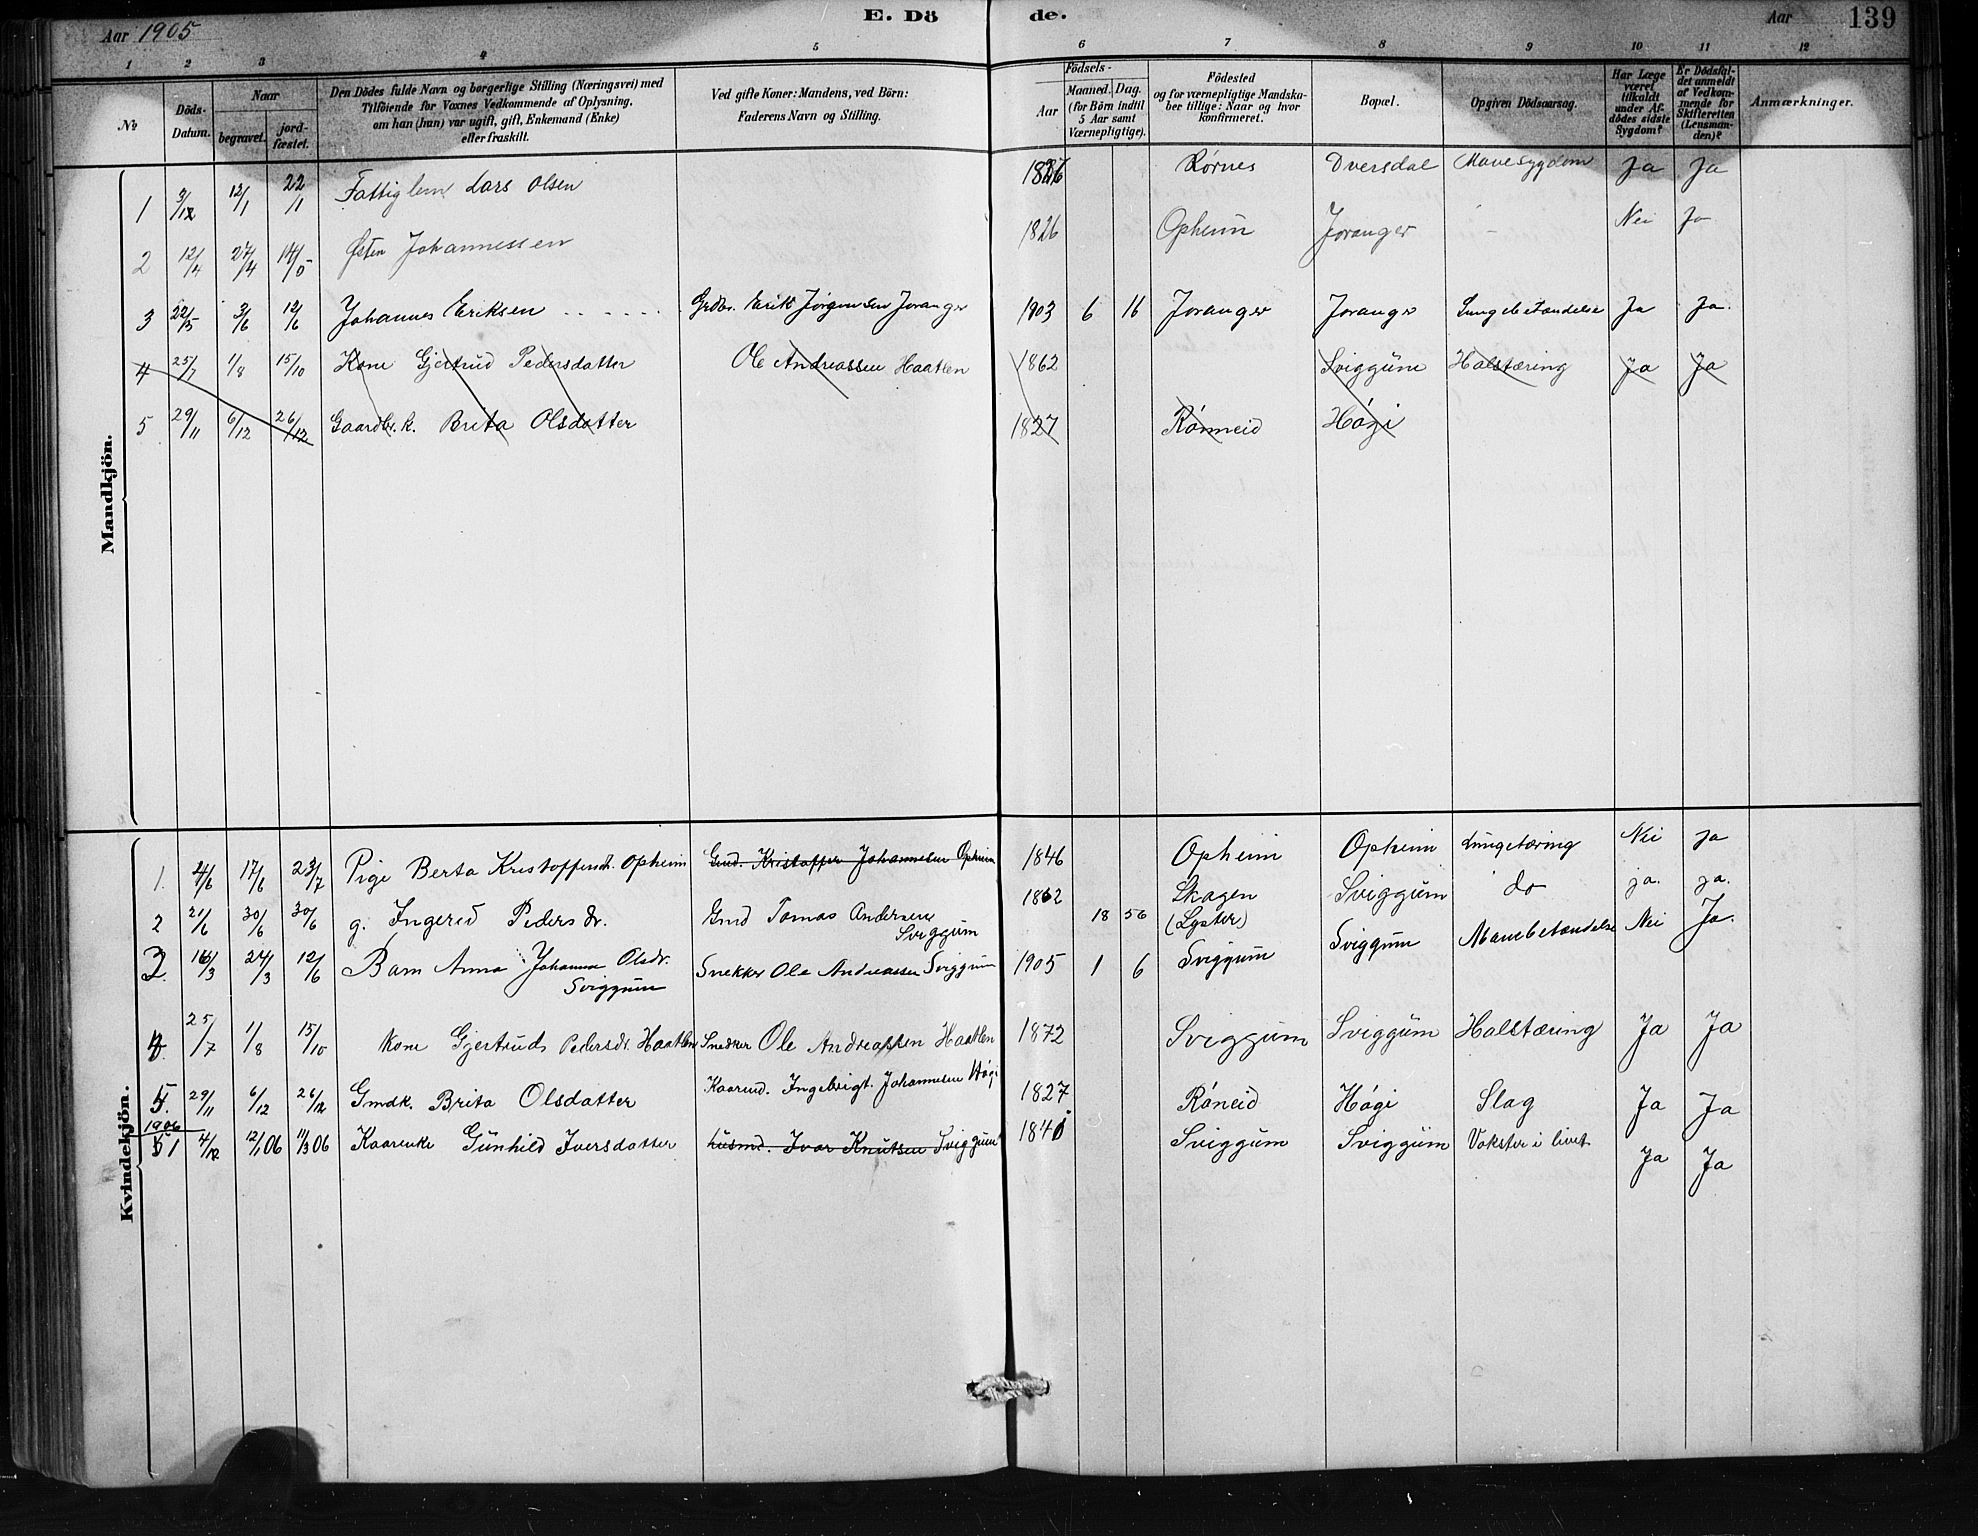 Aar 1905 E. Dö de. Aar 139
1 2 3 4 5 6 7 8 9 10 11 12
No
Döds-Datum.
Naar
begravet.
jord-fæstet.
Den Dödes fulde Navn og borgerlige Stilling (Næringsvei) med
Tilföiende for Voxnes Vedkommende af Oplysning,
om han (hun) var ugift, gift, Enkemand (Enke)
eller fraskilt.
Ved gifte Koner: Mandens, ved Börn:
Faderens Navn og Stilling.
Födsels-
Aar
Maaned. Dag.
(for Börn indtil
5 Aar samt
Værnepligtige).
Födested
og for værnepligtige Mandska-
ber tillige: Naar og hvor
konfirmeret.
Bopæl.
Opgiven Dödsaarsag.
Har Læge
været
tilkaldt
under Af-
dödes sidste
Sygdom?
Er Dödsfal-
det anmeldt
af Vedkom-
mende for
Skifteretten
(Lensman-
den)?
Anmærkninger.
Mandkjön.
1 3/12 12/1 22/1 Fattiglem Lars Olsen Rørnes Dversdal Mavesygdom Ja Ja
2 12/4 24/4 14/5 Østen Johannessen 1826 Opheim Joranger - Nei Ja
3 22/5 3/6 12/6 Johannes Eriksen ...... Grdbr. Erik Jørgensen Joranger 1903 6 16 Joranger Joranger Lungebetændelse Ja Ja.
4 25/7 1/8 15/10 Kone Gjertrud Pedersdatter Ole Andreassen Haatlen 1862 Sviggum Halstæring Ja Ja
5 29/11 6/12 26/12 Gaardbr. k. Brita Olsdatter 1827 Rønneid Høgi
Kvindekjön.
1. 4/6 17/6 23/7 Pige Berta Kristoffersd. Opheim Gmd. Kristoffer Johannesen Opheim 1846 Opheim Opheim Lungetæring Nei Ja
2 21/6 30/6 30/6 g. Ingerid Peders dr. Gmd Tomas Andersen Sviggum 1862 18 56 Skagen (Lyster) Sviggum do ja. ja.
3. 16/3 24/3 12/6 Barn Anna Johanna Olsdr. Sviggum Snekker Ole Andreassen Sviggum 1905 1 6 Sviggum Sviggum Mavebetændelse Nei Ja.
4 25/7 1/8 15/10 Kone Gjertrud Pedersdr. Haatlen Snedker Ole Andreassen Haatlen 1872 Sviggum Sviggum Halstæring Ja Ja
5. 29/11 6/12 26/12 Gmdk. Brita Olsdatter Kaarmd. Ingebrigt Johannesen Høgi 1827 Røneid Høgi Slag Ja Ja
1906
1 4/12 12/1 06 11/3 06 Kaarenke Gunhild Iversdatter husmd. Ivar Knutsen Sviggum Sviggum Sviggum Vokster i livet Ja Ja